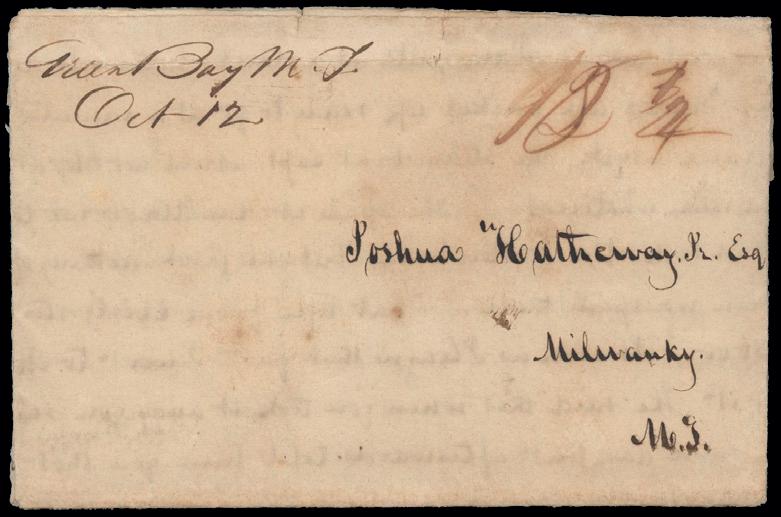 Green Bay M. T.
Oct 12
18 3/4
Joshua Hathaway, Jr. Esq
Milwauky.
M. T.